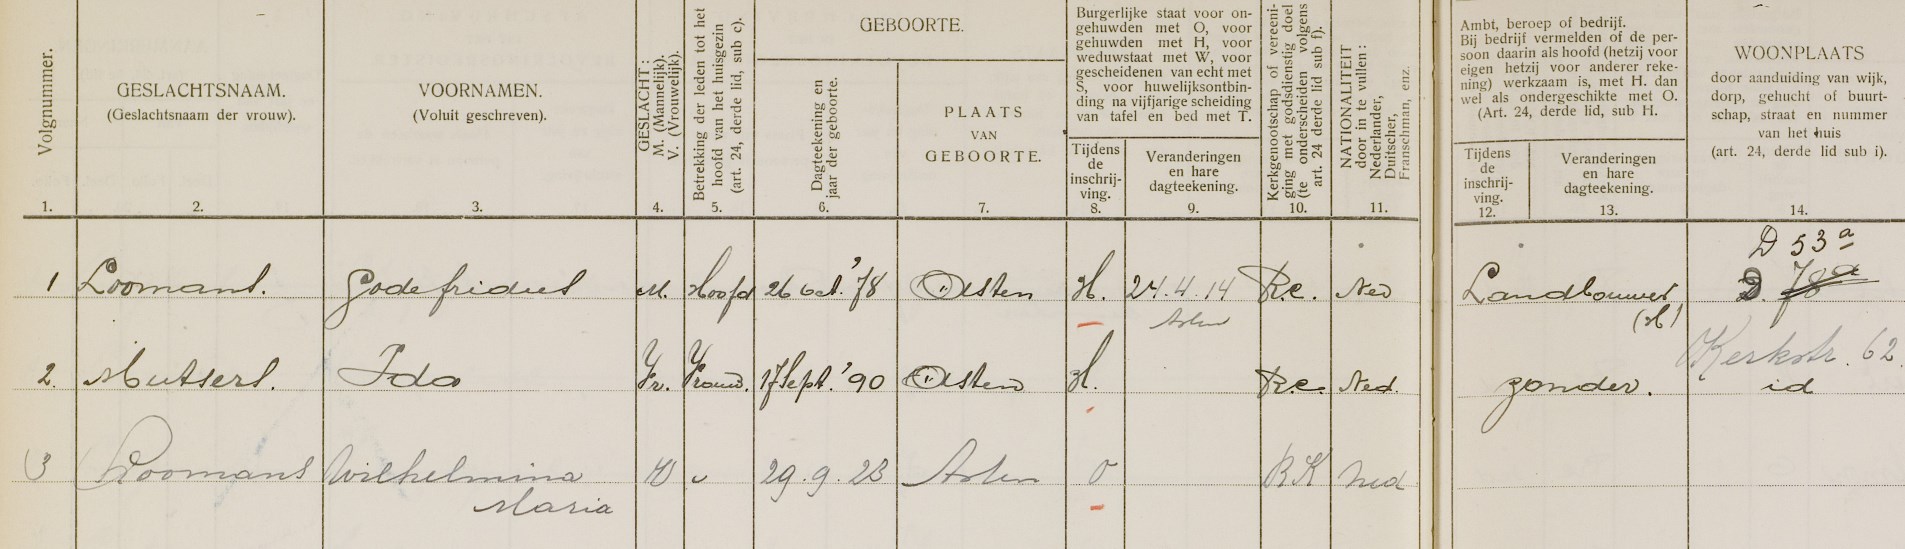 Volgnummer.
1.
GESLACHTSNAAM.
(Geslachtsnaam der vrouw).
2.
VOORNAMEN.
(Voluit geschreven).
3.
GESLACHT:
M. (Mannelijk).
V. (Vrouwelijk).
4.
Betrekking der leden tot het
hoofd van het huisgezin
(art. 24, derde lid, sub c).
5.
GEBOORTE.
Dagteekening en
jaar der geboorte.
6.
PLAATS
VAN
GEBOORTE.
7.
Burgerlijke staat voor on-
gehuwden met O, voor
gehuwden met H, voor
weduwstaat met W, voor
gescheidenen van echt met
S, voor huwelijksontbin-
ding na vijfjarige scheiding
van tafel en bed met T.
Tijdens
de
inschrij-
ving.
8.
Veranderingen
en hare
dagteekening.
9.
Kerkgenootschap of vereeni-
ging met godsdienstig doel
(te onderscheiden volgens
art. 24 derde lid, sub f).
10.
NATIONALITEIT
door in te vullen:
Nederlander,
Duitscher,
Franschman, enz.
11.
Ambt, beroep of bedrijf.
Bij bedrijf vermelden of de per-
soon daarin als hoofd (hetzij voor
eigen hetzij voor anderer reke-
ning) werkzaam is, met H. dan
wel als ondergeschikte met O.
(Art. 24, derde lid, sub H.
Tijdens
de
inschrij-
ving.
12.
Veranderingen
en hare
dagteekening.
13.
WOONPLAATS
door aanduiding van wijk,
dorp, gehucht of buurt-
schap, straat en nummer
van het huis
(art. 24, derde lid sub i).
14.
D 53a
1 Loomans. Godefridus M. Hoofd 26 Oct. '78 Asten H. 24.4.14 R.c. Ned Landbouwer D. 78a
Asten (H)
Kerkstr. 62
2. Mutsers. Ida Vr. Vrouw. 17 Sept. '90 Asten H. R.c. Ned. zonder. id
3 Loomans Wilhelmina V 29.9.23 Asten O RK Ned
Maria